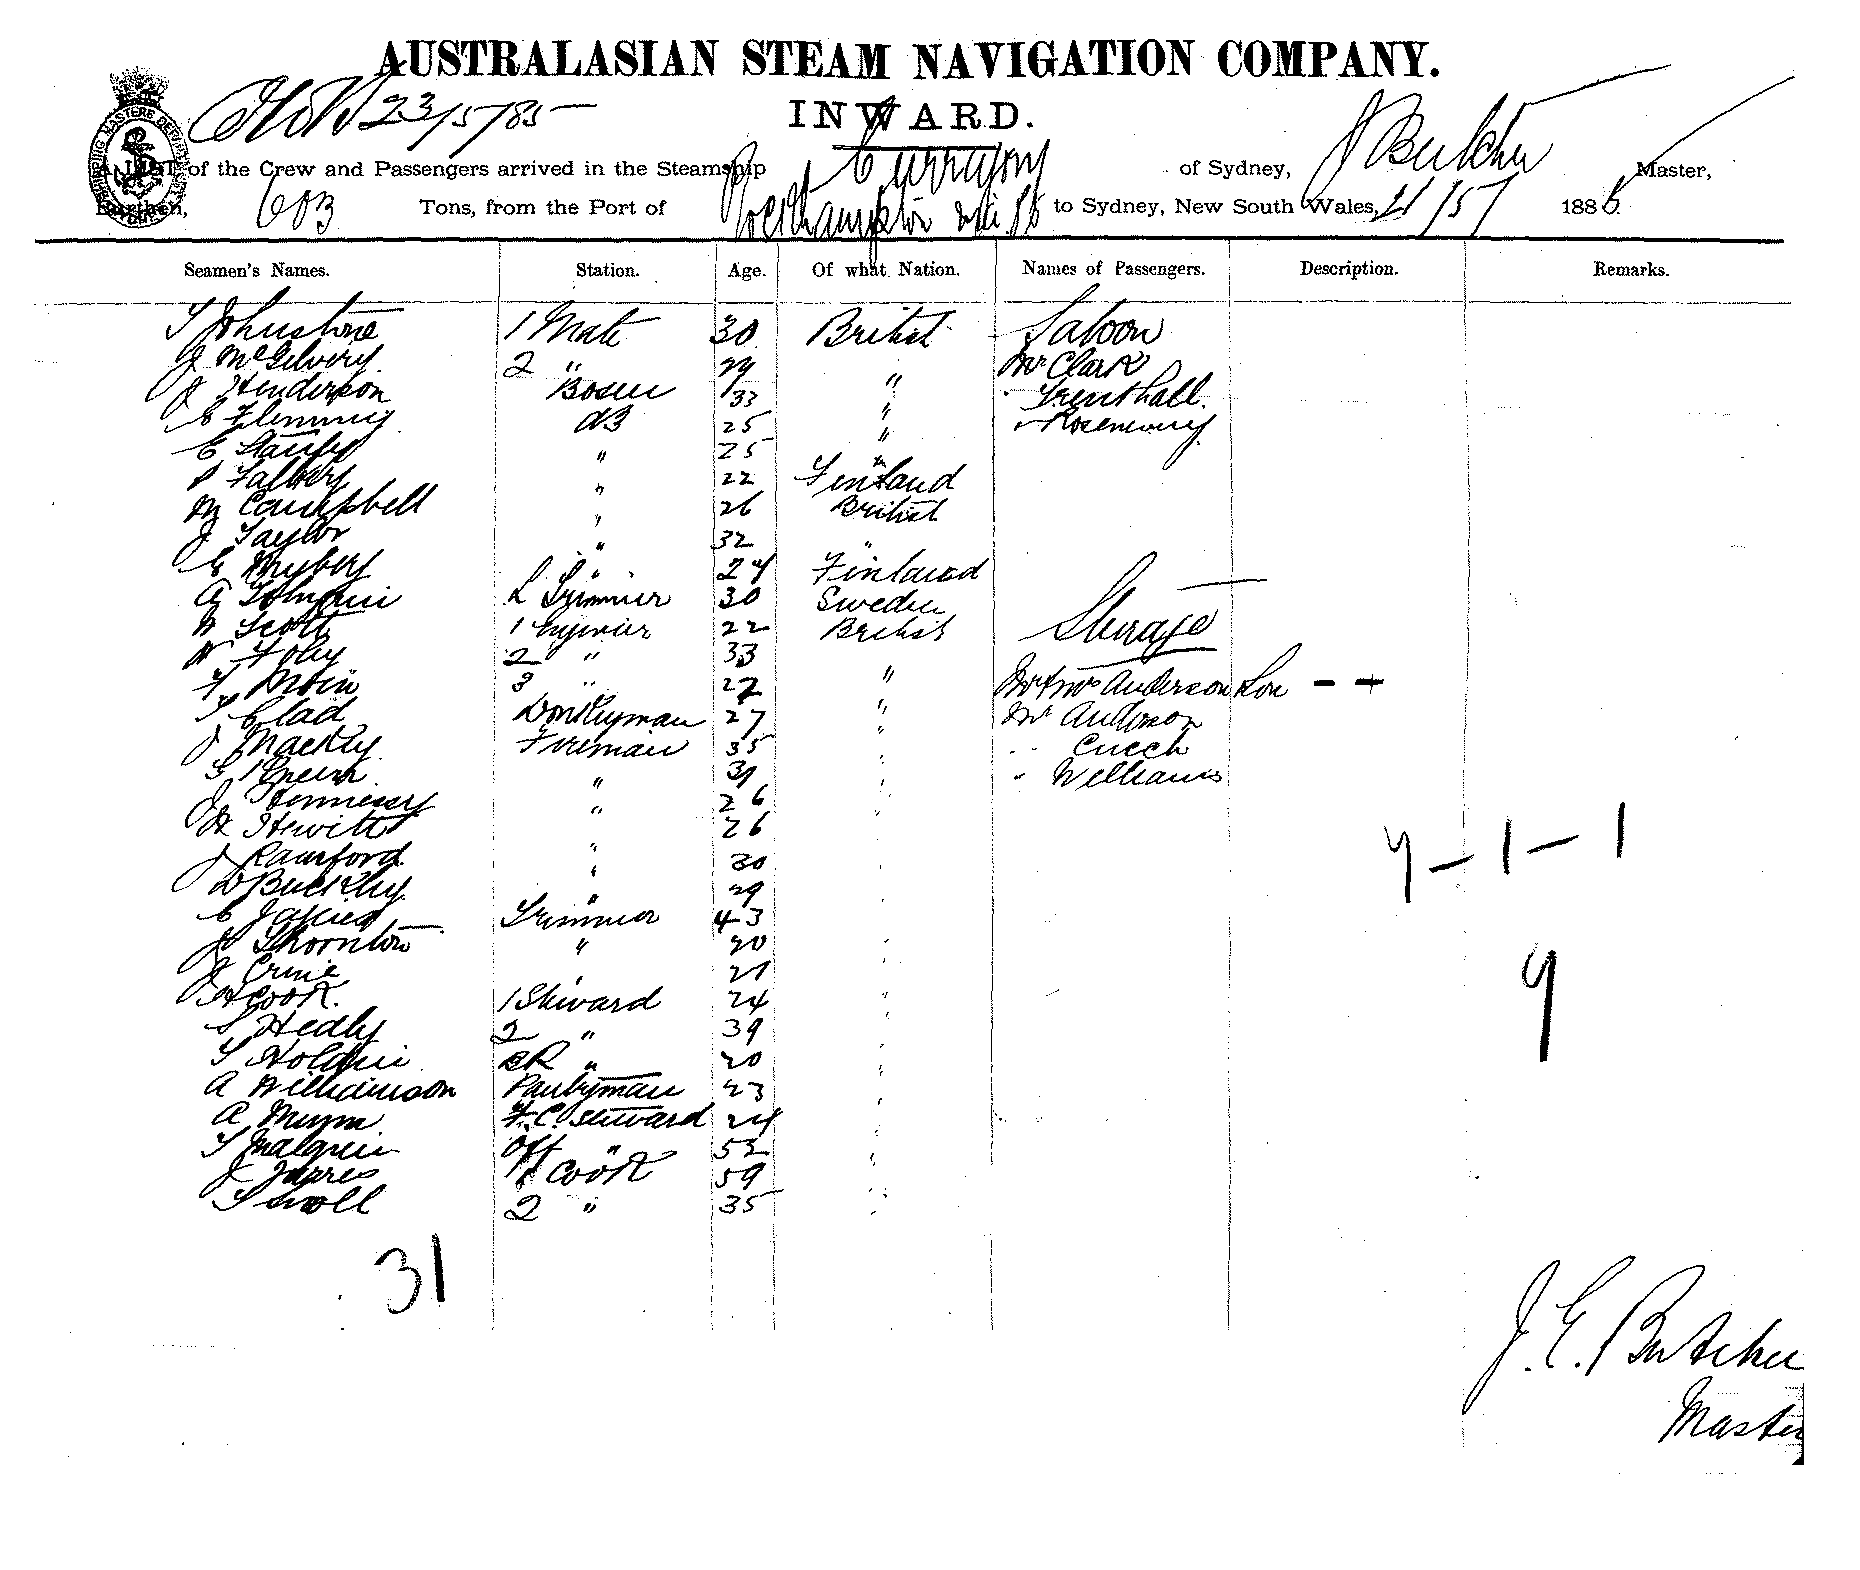 AUSTRALASIAN STEAM NAVIGATION COMPANY.
INWARD.
23/5/85
A LIST of the Crew and Passengers arrived in the Steamship Currajong of Sydney, J Butcher Master,
Burthen, 603 Tons, from the Port of Rockhampton to Sydney, New South Wales, 21/5/ 1885
Seamen's Names. Station. Age. Of what Nation. Names of Passengers. Description. Remarks.
T Johnstone 1 Mate 30 British Saloon
J McGilvery 2 " 29 Mr Clark
J Henderson Bosun 33 " Trenthall
C Flemming AB 25 " Rosenwarg
E 25 "
" 22 Finland
M Campbell " 26 British
J Taylor " 32 "
" 24 Finland
A L Trimmer 30 Sweden
W Scott 1 Engineer 22 British Sterage
W Foley 2 " 33
3 " 27 " Mr & Mrs Anderson Son - -
T Clad Donkeyman 27 " Mr Anderson
J Mackly Fireman 35 " " Creech
G " 31 " " Williams
J Hennessy " 26 "
H Hewitt 26 "
J Rainford " 30 "
D Buckley " 29
C James Trimmer 43
J Thornton " 20
J " 21
H Cook 1 Steward 24 "
S Hedly 2 " 39
T Holdin " 20
A Williamson Pantryman 23 "
A F.C. Steward 24 "
T Off " 52
J Cook 59
T Snoll 2 " 35
7 - 1 - 1
9
31
J. E. Butcher
Master